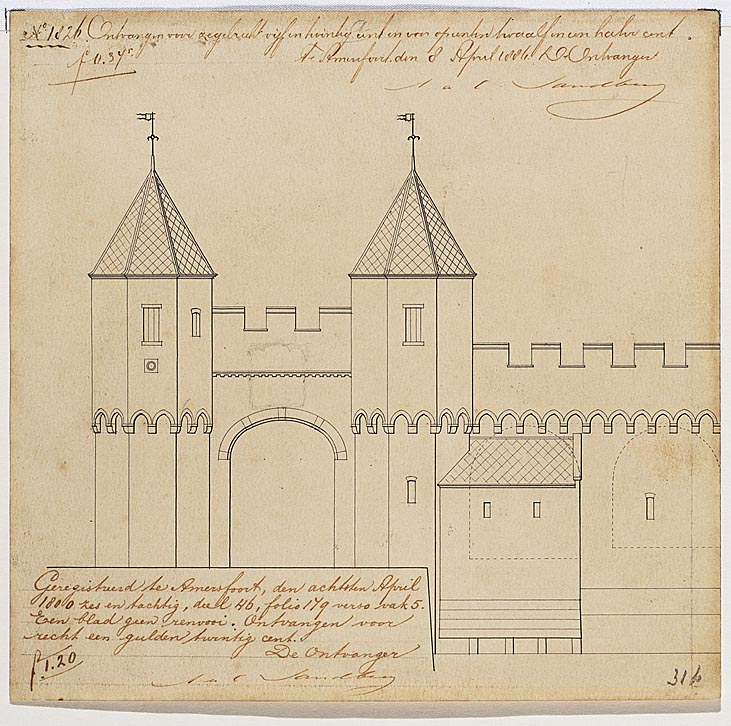 No. 1826 Ontvangen voor zegelrecht vijf en twintig cent en voor opcenten twaalf en een halve cent.
f 0.37⁵
Te Amersfoort, den 8 April 1886. De Ontvanger
Sandberg
Geregistreerd te Amersfoort, den achtsten April
1800 zes en tachtig, deel 46, folio 179 verso vak 5.
Een blad geen renvooi. Ontvangen voor
recht een gulden twintig cent.
De Ontvanger
f 1.20
Sandberg